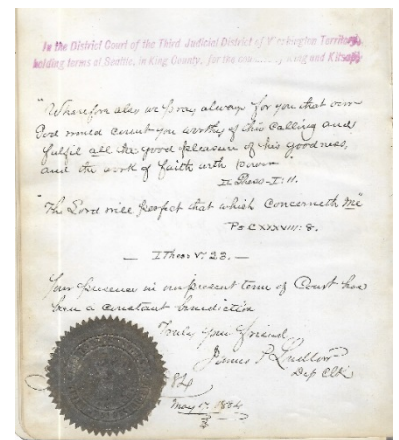 In the District Court of the Third Judicial District of Washington Territory,
holding terms at Seattle, in King County, for the counties of King and Kitsap,
"Wherefore also we pray always for you that our
God would count you worthy of this calling and
fulfil all the good pleasure of his goodness,
and the work of faith with power
II Thess-I: 11.
"The Lord will perfect that which concerneth me"
Ps CXXXVIII: 8.
— I Thess V: 23. —
Your presence in our present term of Court has
been a constant benediction
Truly your friend,
James P. Ludlow
Dep Clk
84
May 17, 1884